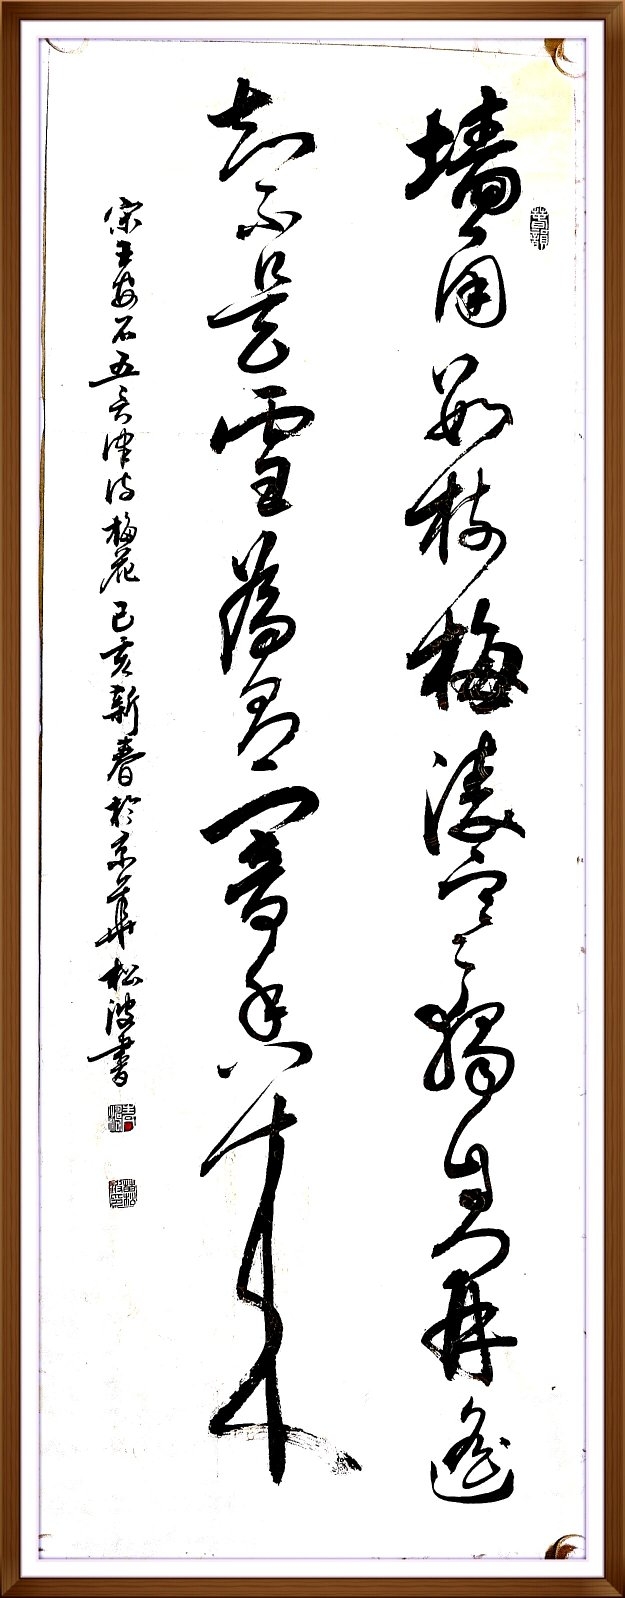 墙角数枝梅凌寒獨自開遙
知不是雪為有暗香来
宋王安石五言律诗梅花己亥新春於京華松波書